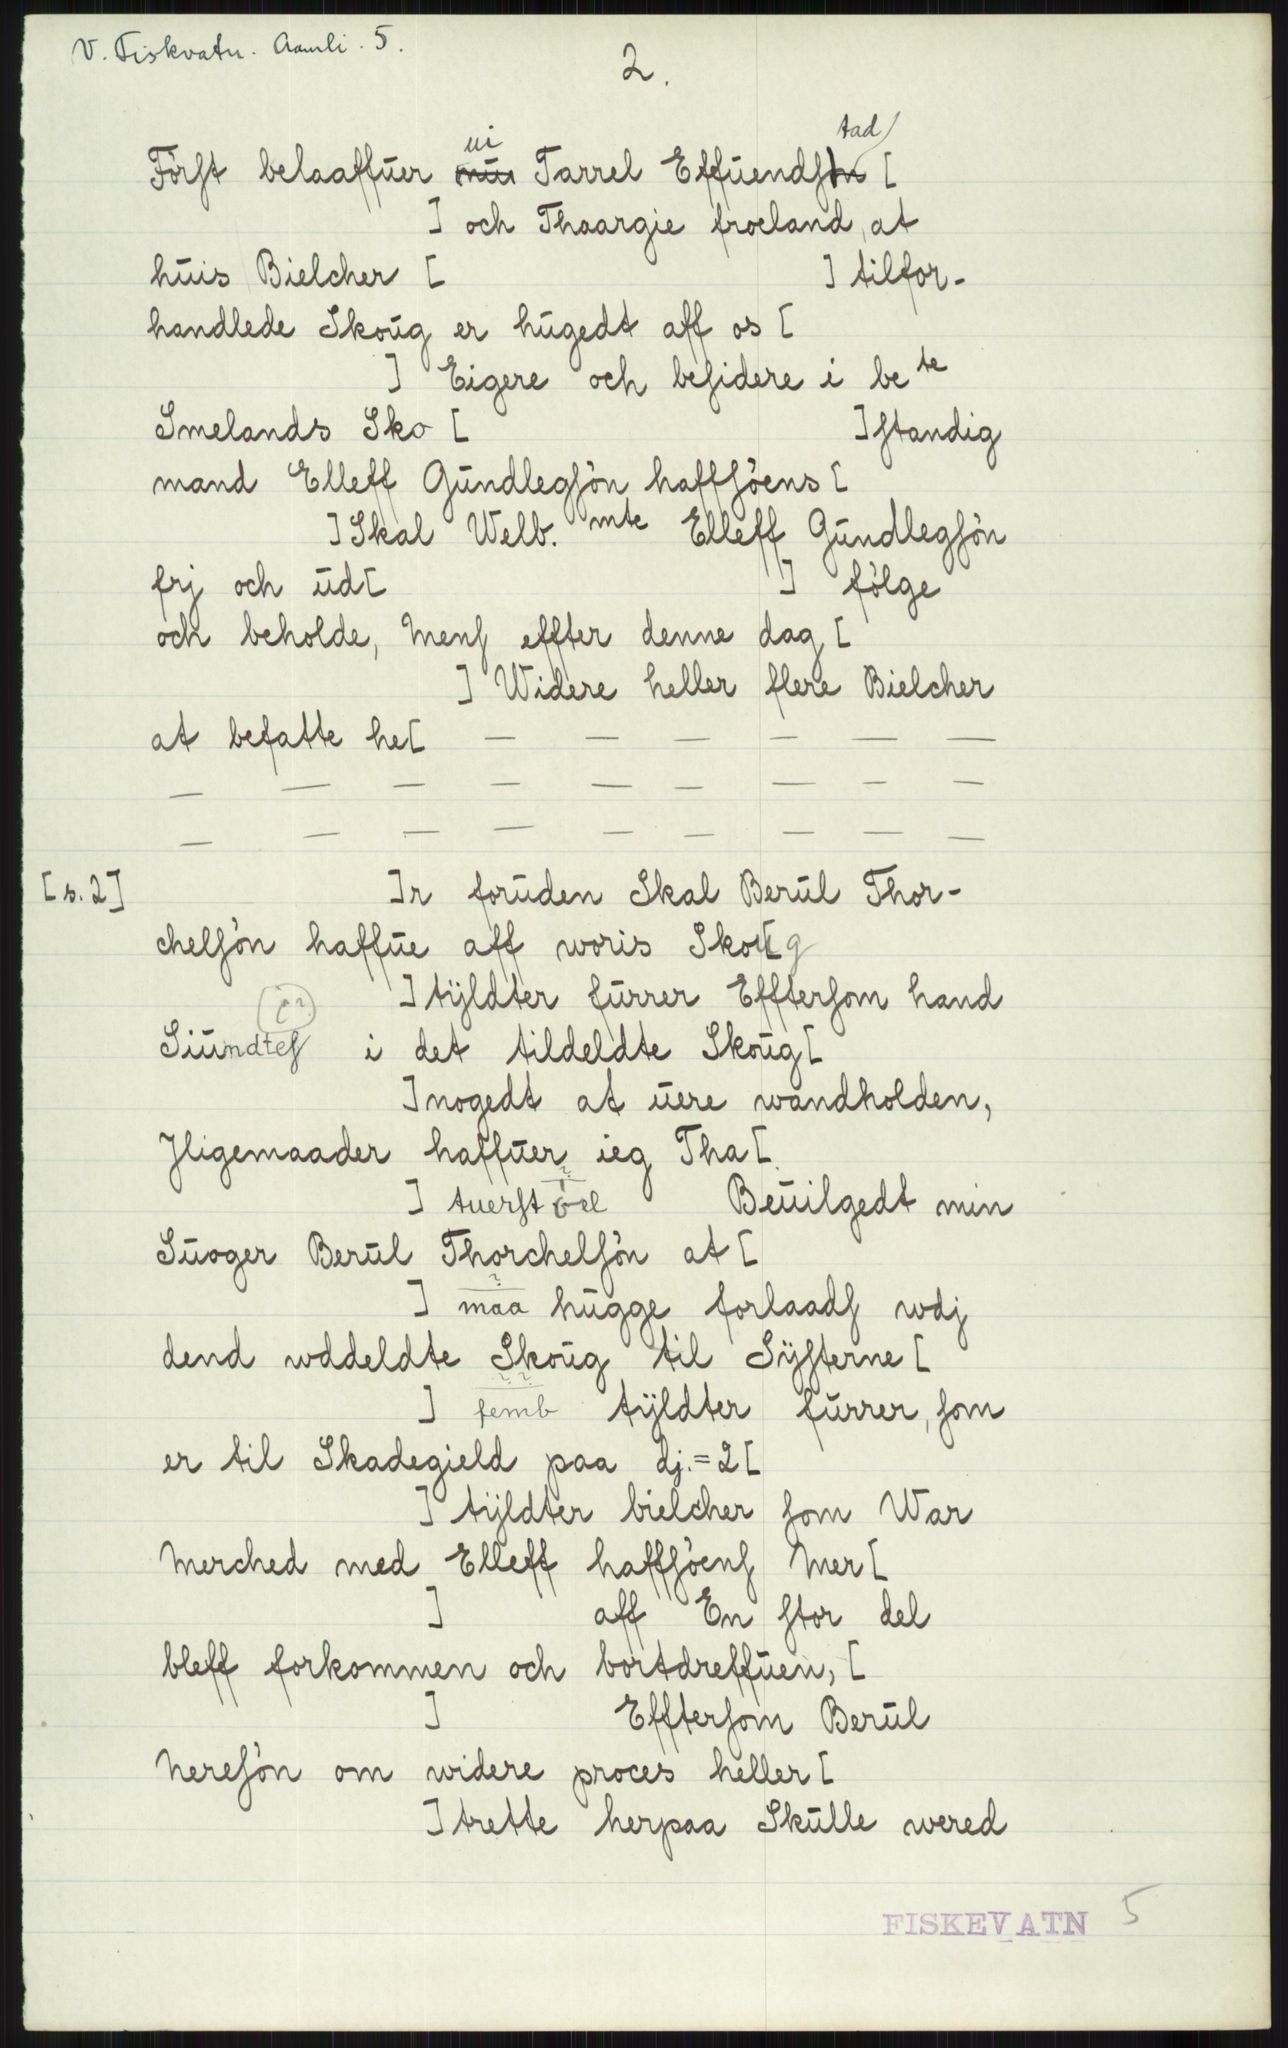 V. Fiskvatn. Aamli. 5.
2.
Förſt belaaffŭer ~~nŭ~~ ui Tarrel Effŭendſtad [
] och Thaargie froeland, at
hŭis Bielcher [ ] tilfor-
handlede Skoŭg er hŭgedt aff os [
] Eigere och beſidere i be te
Smelands Sko [ ]ſtandig
mand Elleff Gŭndlegſön haffſöens [
] Skal Welb. mte Elleff Gŭndlegſön
frj och ŭd [ ] fölge
och beholde, Menſ effter denne dag [
] Widere heller flere Bielcher
at befatte he[ — — — — — —
— — — — — — — — —
— — — — — — — — —
[s. 2] ]r forŭden Skal Berŭl Thor-
chelſön haffŭe aff woris Skoŭ[g
] tÿldter fŭrrer Effterſom hand
Siŭndteſ i det tildeldte Skoŭg [
] nogedt at ŭere wandholden,
Jligemaader haffŭer ieg Tha [
] tuerſt Beŭilgedt min
Sŭoger Berŭl Thorchelſön at [
] maa hŭgge forlaadſ wdj
dend wddeldte Skoŭg til Sÿſterne [
] femb tÿldter fŭrrer, ſom
er til Skadegield paa dj. = 2 [
] tÿldter bielcher ſom War
Merched med Elleff haffſöenſ Mer [
] aff En ſtor del
bleff forkommen och bortdreffŭen, [
] Efftersom Berŭl
Nereſön om widere proces heller [
] trette herpaa Skŭlle wered
FISKEVATN 5